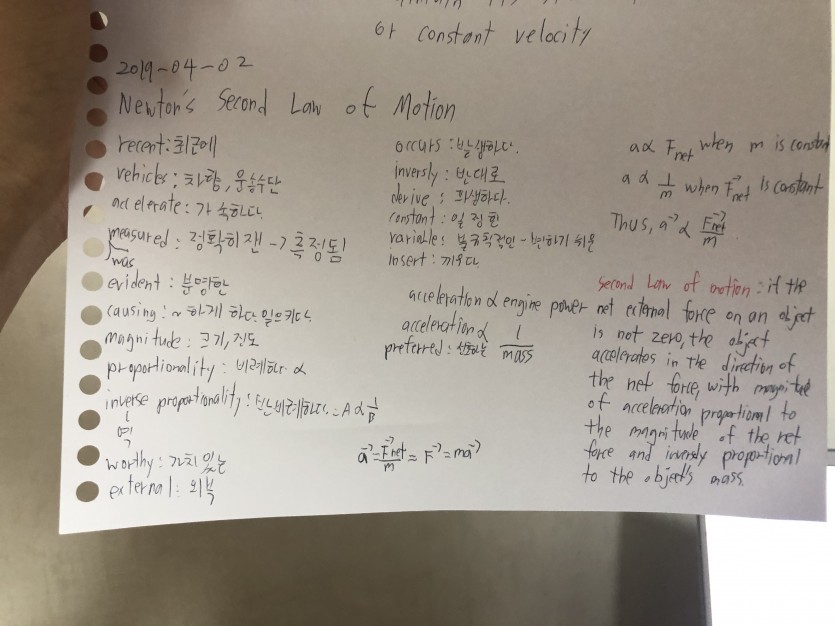 or constant velocity
2019-04-02
Newton's Second Law of Motion
recent: 최근에
vehicles: 차량, 운송수단
accelerate: 가속하다.
measured: 정확히 잰 -> 측정됨
was
evident: 분명한
causing: ~하게 하다. 일으키다.
magnitude: 크기, 진도
proportionality: 비례하다. ∝
inverse proportionality: 반비례하다. = A ∝ 1/B
역
worthy: 가치 있는
external: 외부
occurs: 발생하다.
inversly: 반대로
derive: 파생하다.
constant: 일정한
variable: 불규칙적인 - 변하기 쉬운
insert: 끼우다.
acceleration ∝ engine power
acceleration ∝ 1/mass
preferred: 선호하는
a⃗ = F⃗net/m = F⃗ = ma⃗
a ∝ Fnet when m is constant
a ∝ 1/m when F⃗net is constant
Thus, a⃗ ∝ F⃗net/m
Second Law of motion: if the
net external force on an object
is not zero, the object
accelerates in the direction of
the net force, with magnitude
of acceleration proportional to
the magnitude of the net
force and inversly proportional
to the object's mass.